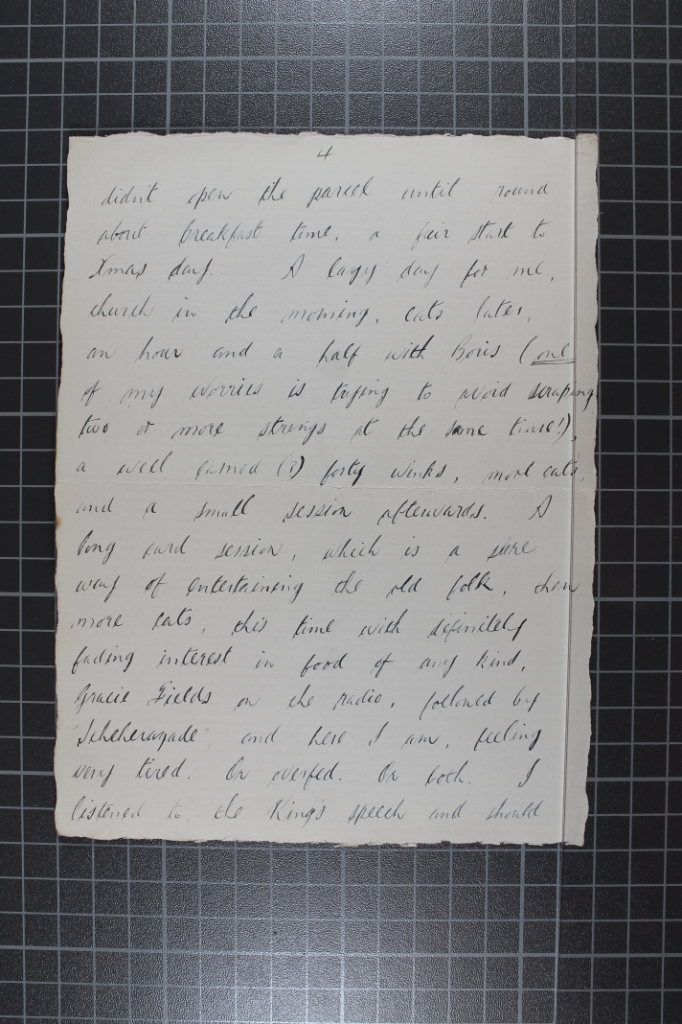 4
didn't open the parcel until round
about breakfast time, a fair start to
Xmas day. A lazy day for me,
church in the morning, eats later,
an hour and a half with Boris (one
of my worries is trying to avoid scraping
two or more strings at the same time!),
a well earned (?) forty winks, more eats,
and a small session afterwards. A
long card session, which is a sure
way of entertaining the old folk, then
more eats, this time with definitely
fading interest in food of any kind,
Gracie Fields on the radio, followed by
"Scheherazade" and here I am, feeling
very tired. Or overfed. Or both. I
listened to the King's speech and should